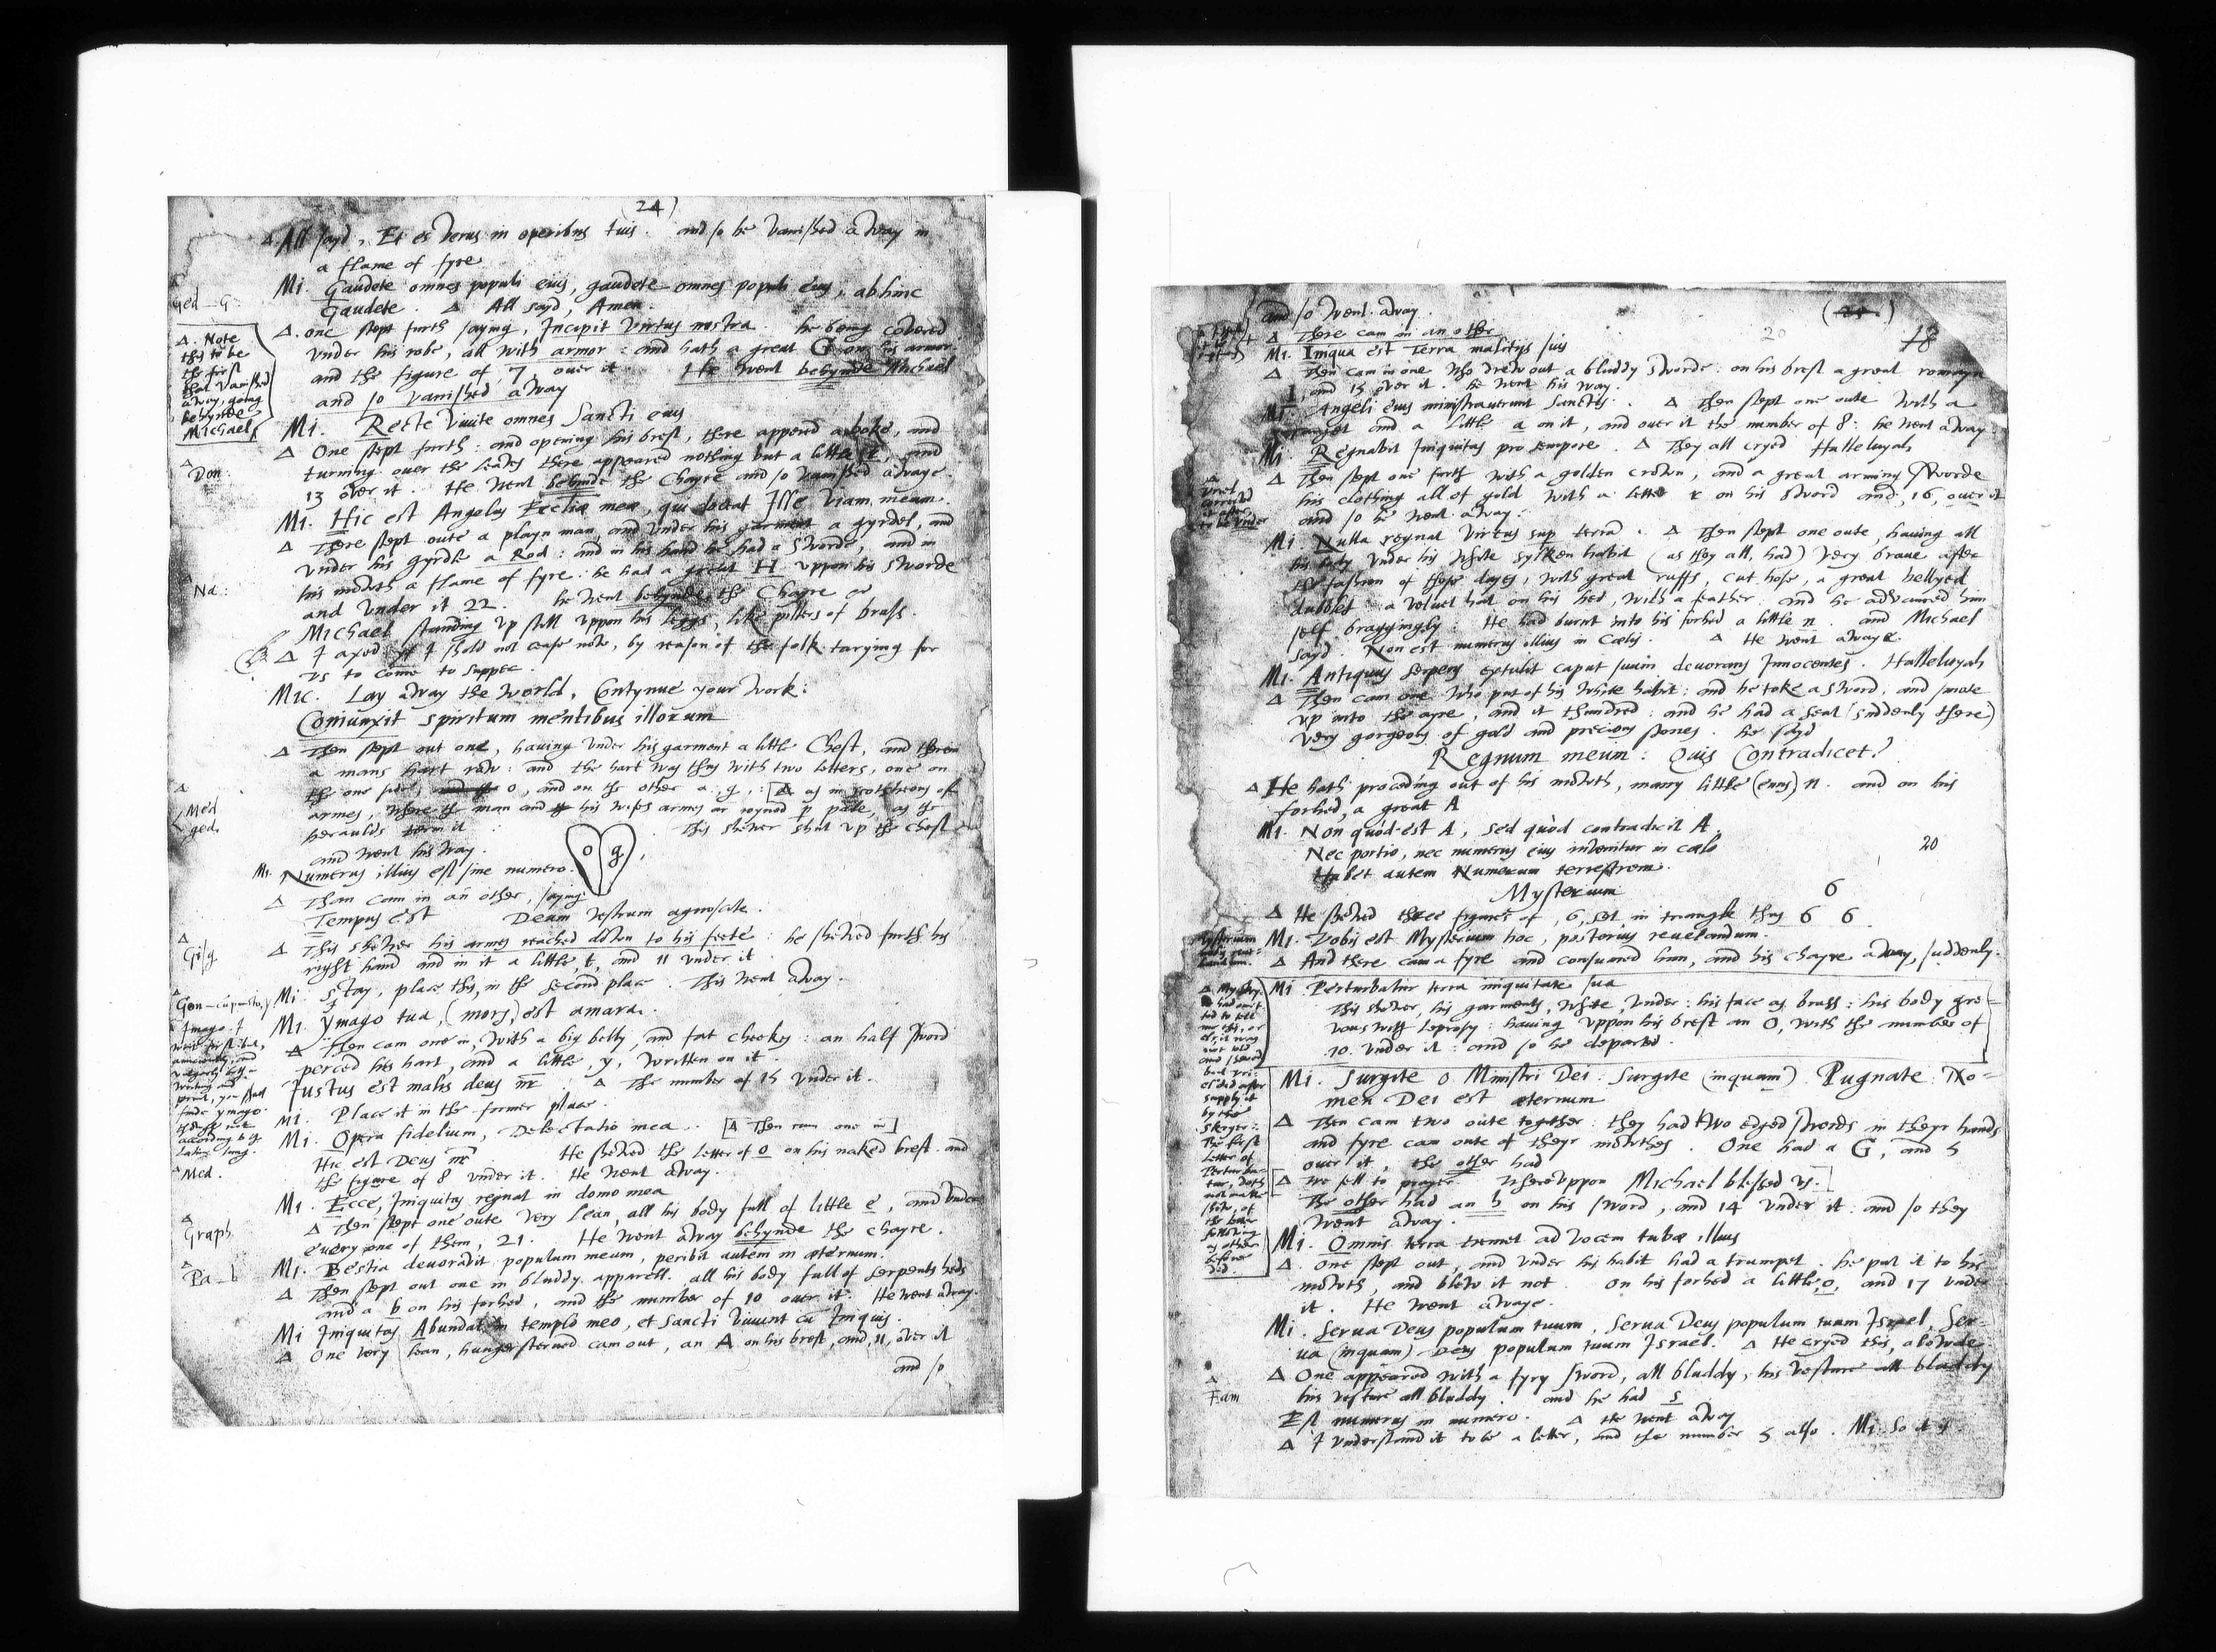 (24)
Δ. All sayd, Et es verus in operibus tuis. and so he vanished away in
a flame of fyre.
Mi. Gaudete omnes populi eius, gaudete omnes populi eius, ab hinc
Gaudete. Δ All sayd, Amen.
Ged — G.
Δ. one stept furth saying, Incipit virtus nostra. he being covered
under his robe, all with armor: and hath a great G on his armor
and the figure of 7 over it. He went behynde Michael
and so vanished away
Δ. Note
this to be
the first
that vanished
away, going
behynde
Michael
Mi. Recte vivite omnes Sancti eius
Δ One stept furth: and opening his brest, there appered a boke, and
turning over the leaves there appeared nothing but a little r, and
13 over it. He went behinde the Chayre and so vanished awaye.
Δ
Don:
Mi. Hic est Angelus Ecclię meæ, qui doceat Ille viam meam.
Δ There stept oute a playn man, and under his garment a gyrdel, and
under his gyrdle a Rod: and in his hand he had a Sworde, and in
his mowth a flame of fyre: he had a great H uppon his Sworde
and under it 22. he went behynde the Chayre &c
Na:
Michael standing up still uppon his leggs, like pillers of brass.
Δ I axed yf I shold not cease now, by reason of the folk tarying for
us to come to supper.
Mic. Lay away the World, Contynue your work:
Coniunxit spiritum mentibus illorum
Δ Then stept out one, having under his garment a little Chest, and therin
a mans hart raw: and the hart was thus with two letters, one on
the one side o, and on the other a .g.: [Δ as in scotcheons of
armes, where the man and his wifes armes ar ioyned p pale, as the
heraulds term it. This shewer shut up the chest
and went his way.
Δ
Med
ged.
o g
Mi. Numerus illius est sine numero.
Δ Than cam in an other, saying
Tempus est Deum vestrum agnoscite.
Δ This shewer his armes reached down to his feete: he shewed furth his
right hand and in it a little t, and 11 under it.
Δ
Gisg.
Mi. Stay, place this, in the second place. This went away.
Mi. ymago tua, (mors,) est amara.
Δ Then cam one in, with a big belly, and fat cheekes: an half sword
perced his hart, and a little, y, written on it.
Justus est malis deus nr. Δ The number of 15 under it.
Mi. Place it in the former place.
Mi. Opera fidelium, Delectatio mea. [Δ Then cam one in]
Hic est Deus nr. He shewed the letter of o on his naked brest and
the figure of 8 under it. He went away.
Med.
Mi. Ecce, Iniquitas regnat in domo mea
Δ Then stept one oute very lean, all his body full of little e, and under
every one of them, 21. He went away behynde the chayre.
Δ
Graph
Mi. Bestia devoravit populum meum, peribit autem in æternum.
Δ Then stept out one in bluddy apparell. all his body full of serpents heds
and a b on his forhed, and the number of 10 over it. He went away.
Δ
Pa — b
Mi Iniquitas Abundat in templo meo, et Sancti vivunt cū Iniquis.
Δ One very lean, hunger sterved cam out, an A on his brest, and, 11, over it
and so
and so went away.
18
20
Δ There cam in an other
Mi. Iniqua est Terra malitijs suis
Δ Then cam in one who drew out a bluddy sworde: on his brest a great romayn
I and 15 over it. he went his way.
Mi Angeli eius ministraverunt Sanctis. Δ Then stept one oute with a
and a little a on it, and over it the number of 8: he went away.
Mi. Regnabit Iniquitas pro tempore. Δ They all cryed Halleluyah
Δ Then stept one furth with a golden crown, and a great arming Sworde
his clothing all of gold with a letter r on his sword and, 16, over it
and so he went away.
Mi. Nulla regnat virtus sup terrā. Δ Then stept one oute, having all
his body under his white sylken habit (as they all, had) very brave after
the fashion of those dayes, with great ruffs, cut hose, a great bellyed
dubblet a velvet hat on his hed, with a feather and he advaunced him
self braggingly: He had burnt into his forhed a little n. and Michael
sayd Non est numerus illius in Cælis. Δ He went awaye.
Mi. Antiquus serpens extulit caput suum devorans Innocentes. Halleluyah
Δ Then cam one who put of his white habit: and he toke a sword, and smote
up into the ayre, and it thundred: and he had a seal (suddenly there)
very gorgeous of gold and precious stones. he sayd
Regnum meum: Quis Contradicet?
Δ He hath proceding out of his mowth, many little (enns) n. and on his
forhed, a great A
Mi. Non quòd est A, sed quòd contradicit A.
Nec portio, nec numerus eius invenitur in cælo
Habet autem Numerum terrestrem.
20
Mysterium
6
Δ He shewed three figures of, 6, set in triangle thus 6 6
Mi. Vobis est Mysterium hoc, posterius revelandum.
Δ And there cam a fyre and consumed him, and his chayre away, suddenly.
Mi Perturbatur terra iniquitate sua
This shewer, his garments, white, under: his face as brass: his body gre-
vous with leprosy: having uppon his brest an O, with the number of
10. under it: and so he departed.
Mi. Surgite o Ministri Dei: Surgite (inquam) Pugnate: No-
men Dei est æternum
Δ Then cam two oute together: they had two edged swords in theyr hands
and fyre cam oute of theyr mowthes. One had a G, and 5
over it, the other had
[Δ We fell to prayer. Wheruppon Michael blessed us.]
The other had an h on his sword, and 14 under it: and so they
went away.
Mi. Omnis terra tremet ad vocem tubæ illius
Δ. One stept out, and under his habit had a trumpet. he put it to his
mowth, and blew it not. On his forhed a little, o, and 17 under
it. He went awaye.
Mi. Serva Deus populum tuum, Serva Deus populum tuum Israel, Ser-
va (inquam) Deus populum tuum Israel. Δ He cryed this, alowde.
Δ One appeared with a fyry sword, all bluddy, his vesture all bluddy
his vesture all bluddy. and he had s
Δ
Fam
Est numerus in numero. Δ He went away
Δ I understand it to be a letter, and the number 5 also. Mi. So it is